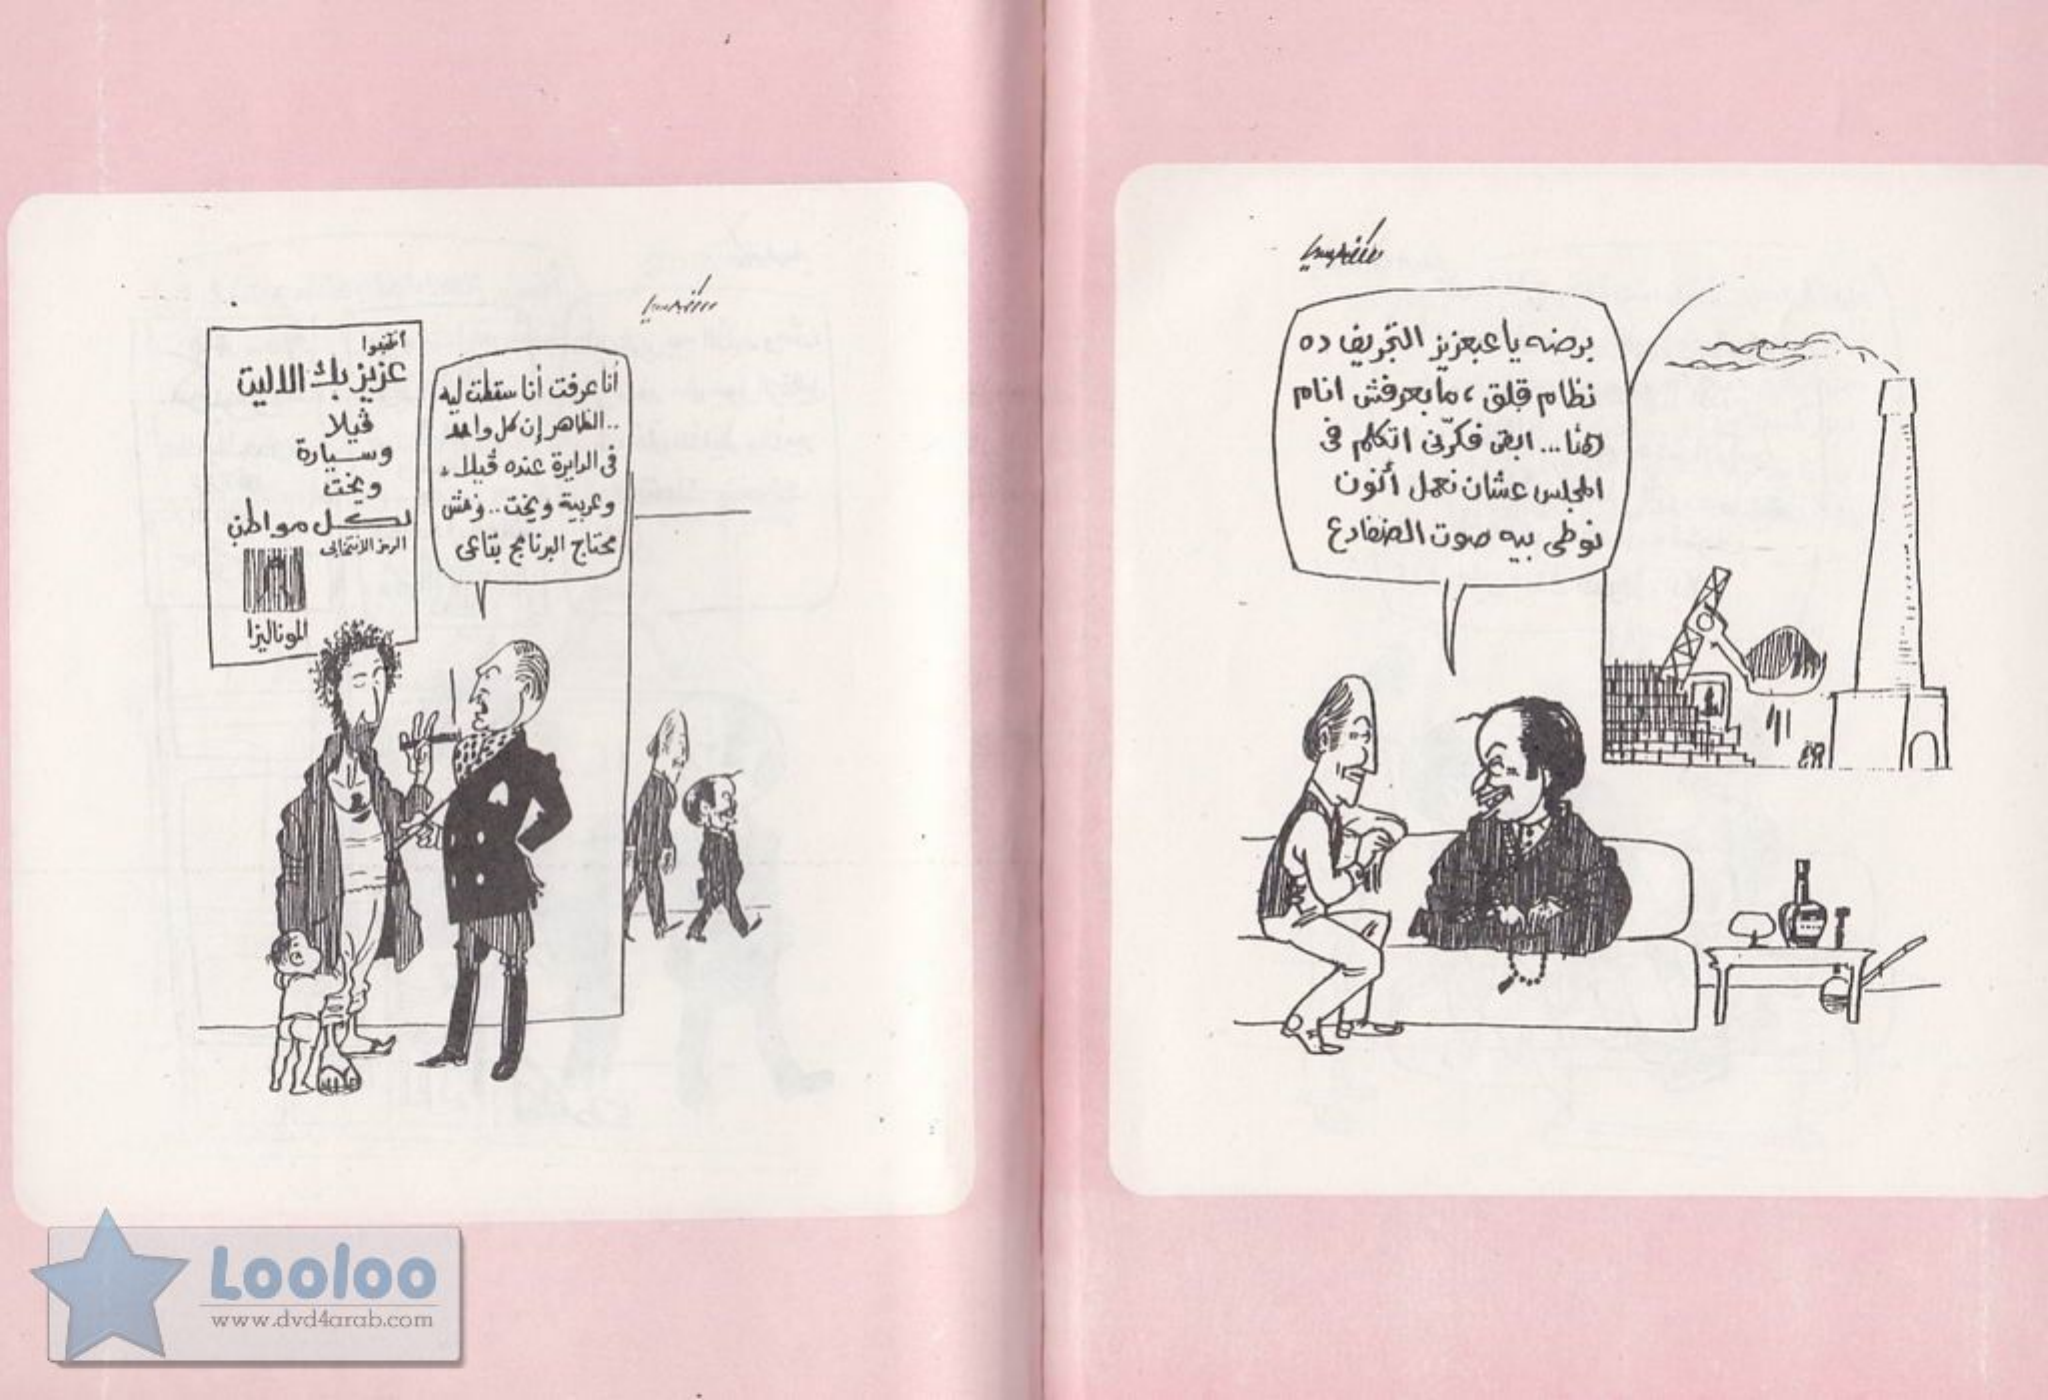 بهجوري
برضه يا عبعزيز التجريف ده
نظام قلق، مابعرفش انام
هنا... ابقى فكرني اتكلم في
المجلس عشان نعمل أنون
نوطى بيه صوت الضفادع
انتخبوا
عزيز بك الاليت
ڤيلا
وسيارة
ويخت
لكل مواطن
الرمز الانتخابى
الموناليزا
أنا عرفت أنا سقطت ليه
..الظاهر إن كل واحد
فى الدايرة عنده ڤيللا
وعربية ويخت.. ومش
محتاج البرنامج بتاعى
Looloo
www.dvd4arab.com